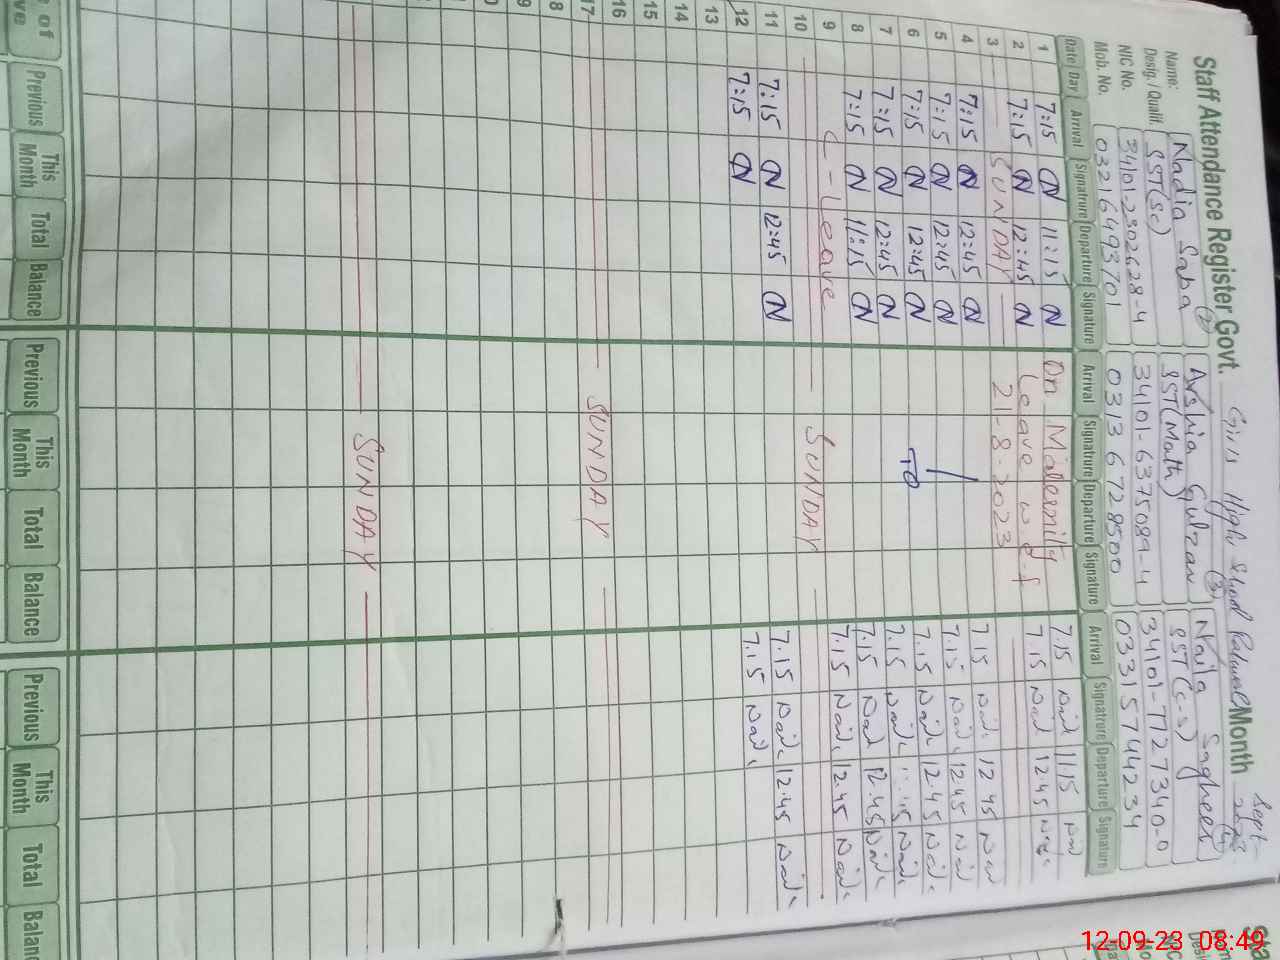 Staff Attendance Register Govt. Girls High School Month Sept 2023
Name: Nadia Saba (2) Arshia Gulzar (3) Naila Sagheer (4)
Desig./ Qualif. SST(Sc) SST(Math) SST(C-S)
NIC No. 34101-2302628-4 34101-6375089-4 34101-7727340-0
Mob. No. 03216493701 03136728500 03315744234
Date Day Arrival Signatrure Departure Signature Arrival Signatrure Departure Signature Arrival Signatrure Departure Signature
1 7:15 11:15 On Maternity 7.15 Nail 11.15
2 7:15 12:45 Leave w-e-f 7.15 Nail 12.45
3 SUNDAY 21-8-2023
4 7:15 12:45 7.15 Nail 12.45
5 7:15 12:45 7.15 Nail 12.45 Nail
6 7:15 12:45 TO 7.15 Nail 12.45 Nail
7 7:15 12:45 7.15 Nail 45 Nail
8 7:15 11:15 7.15 Nail 12.45 Nail
9 C-Leave 7.15 Nail 12.45 Nail
10 SUNDAY
11 7:15 12:45 7.15 Nail 12.45 Nail
12 7:15 7.15 Nail
13
14
15
16
17 SUNDAY
SUNDAY
of Previous This Month Total Balance Previous This Month Total Balance Previous This Month Total Balan
12-09-23 08:49